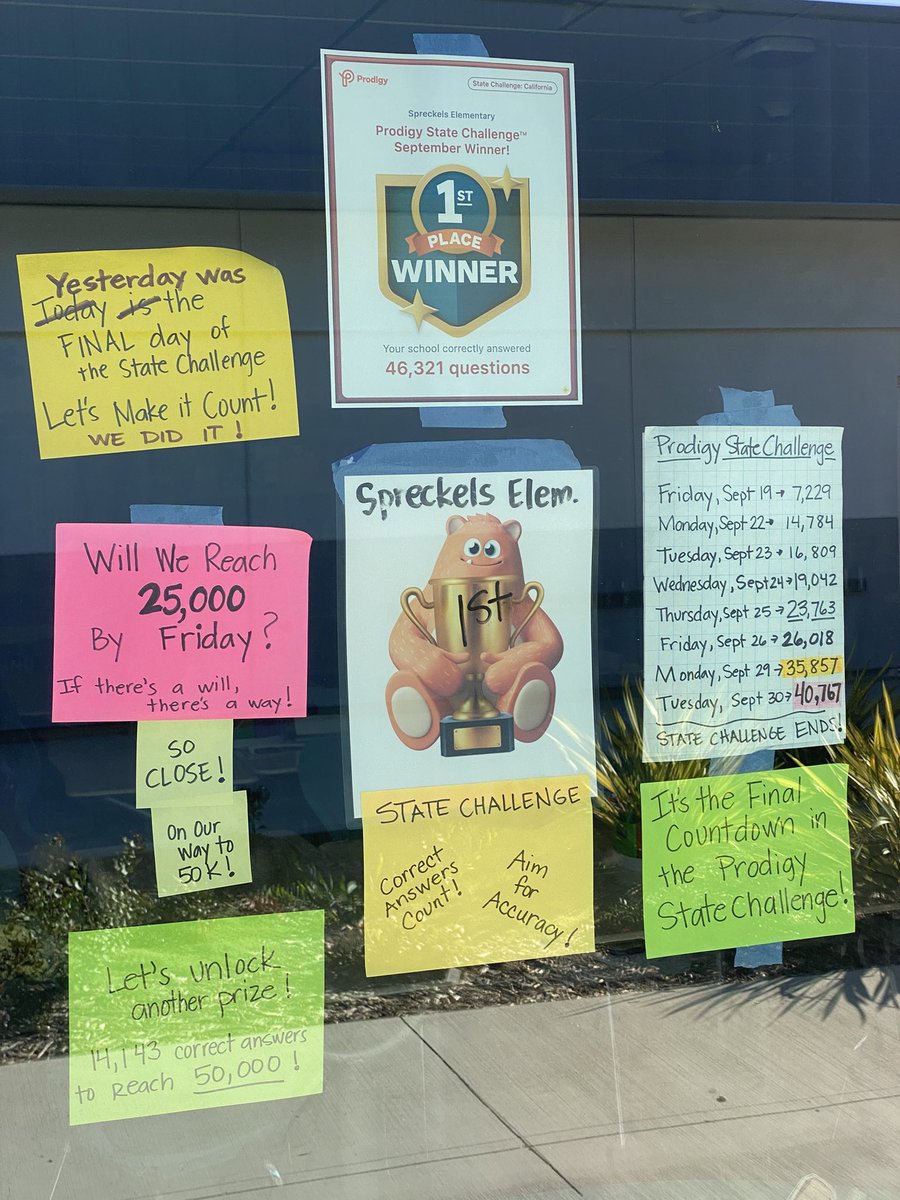 Prodigy
State Challenge: California
Spreckels Elementary
Prodigy State Challenge™
September Winner!
1ST
PLACE
WINNER
Your school correctly answered
46,321 questions
Yesterday was
Today is the
FINAL day of
the State Challenge
Let's Make it Count!
WE DID IT!
Will We Reach
25,000
By Friday?
If there's a will,
there's a way!
SO
CLOSE!
On Our
Way to
50K!
Let's unlock
another prize!
14,143 correct answers
to reach 50,000!
Spreckels Elem.
1st
STATE CHALLENGE
Correct
Answers
Count!
Aim
for
Accuracy!
Prodigy State Challenge
Friday, Sept 19→ 7,229
Monday, Sept 22→ 14,784
Tuesday, Sept 23→ 16,809
Wednesday, Sept 24→19,042
Thursday, Sept 25→ 23,763
Friday, Sept 26→ 26,018
Monday, Sept 29→35,857
Tuesday, Sept 30→40,767
STATE CHALLENGE ENDS!
It's the Final
Countdown in
the Prodigy
State Challenge!